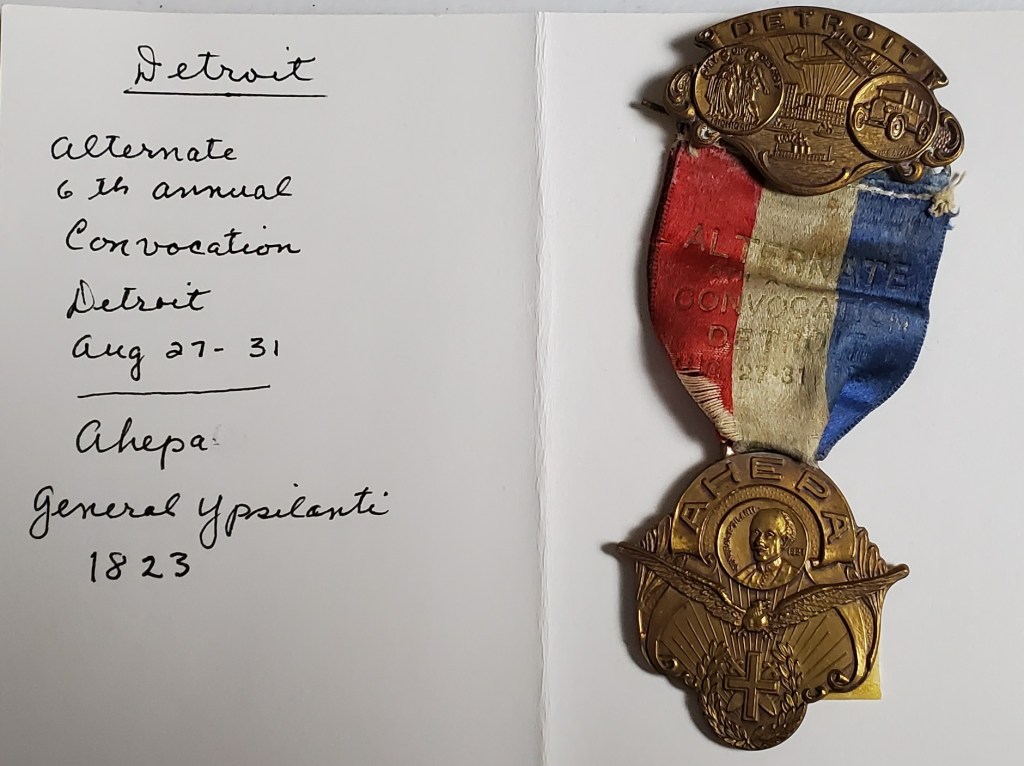 Detroit
Alternate
6th annual
Convocation
Detroit
Aug 27-31
Ahepa
General Ypsilanti
1823
DETROIT
ALTERNATE
CONVOCATION
DETROIT
27-31
AHEPA